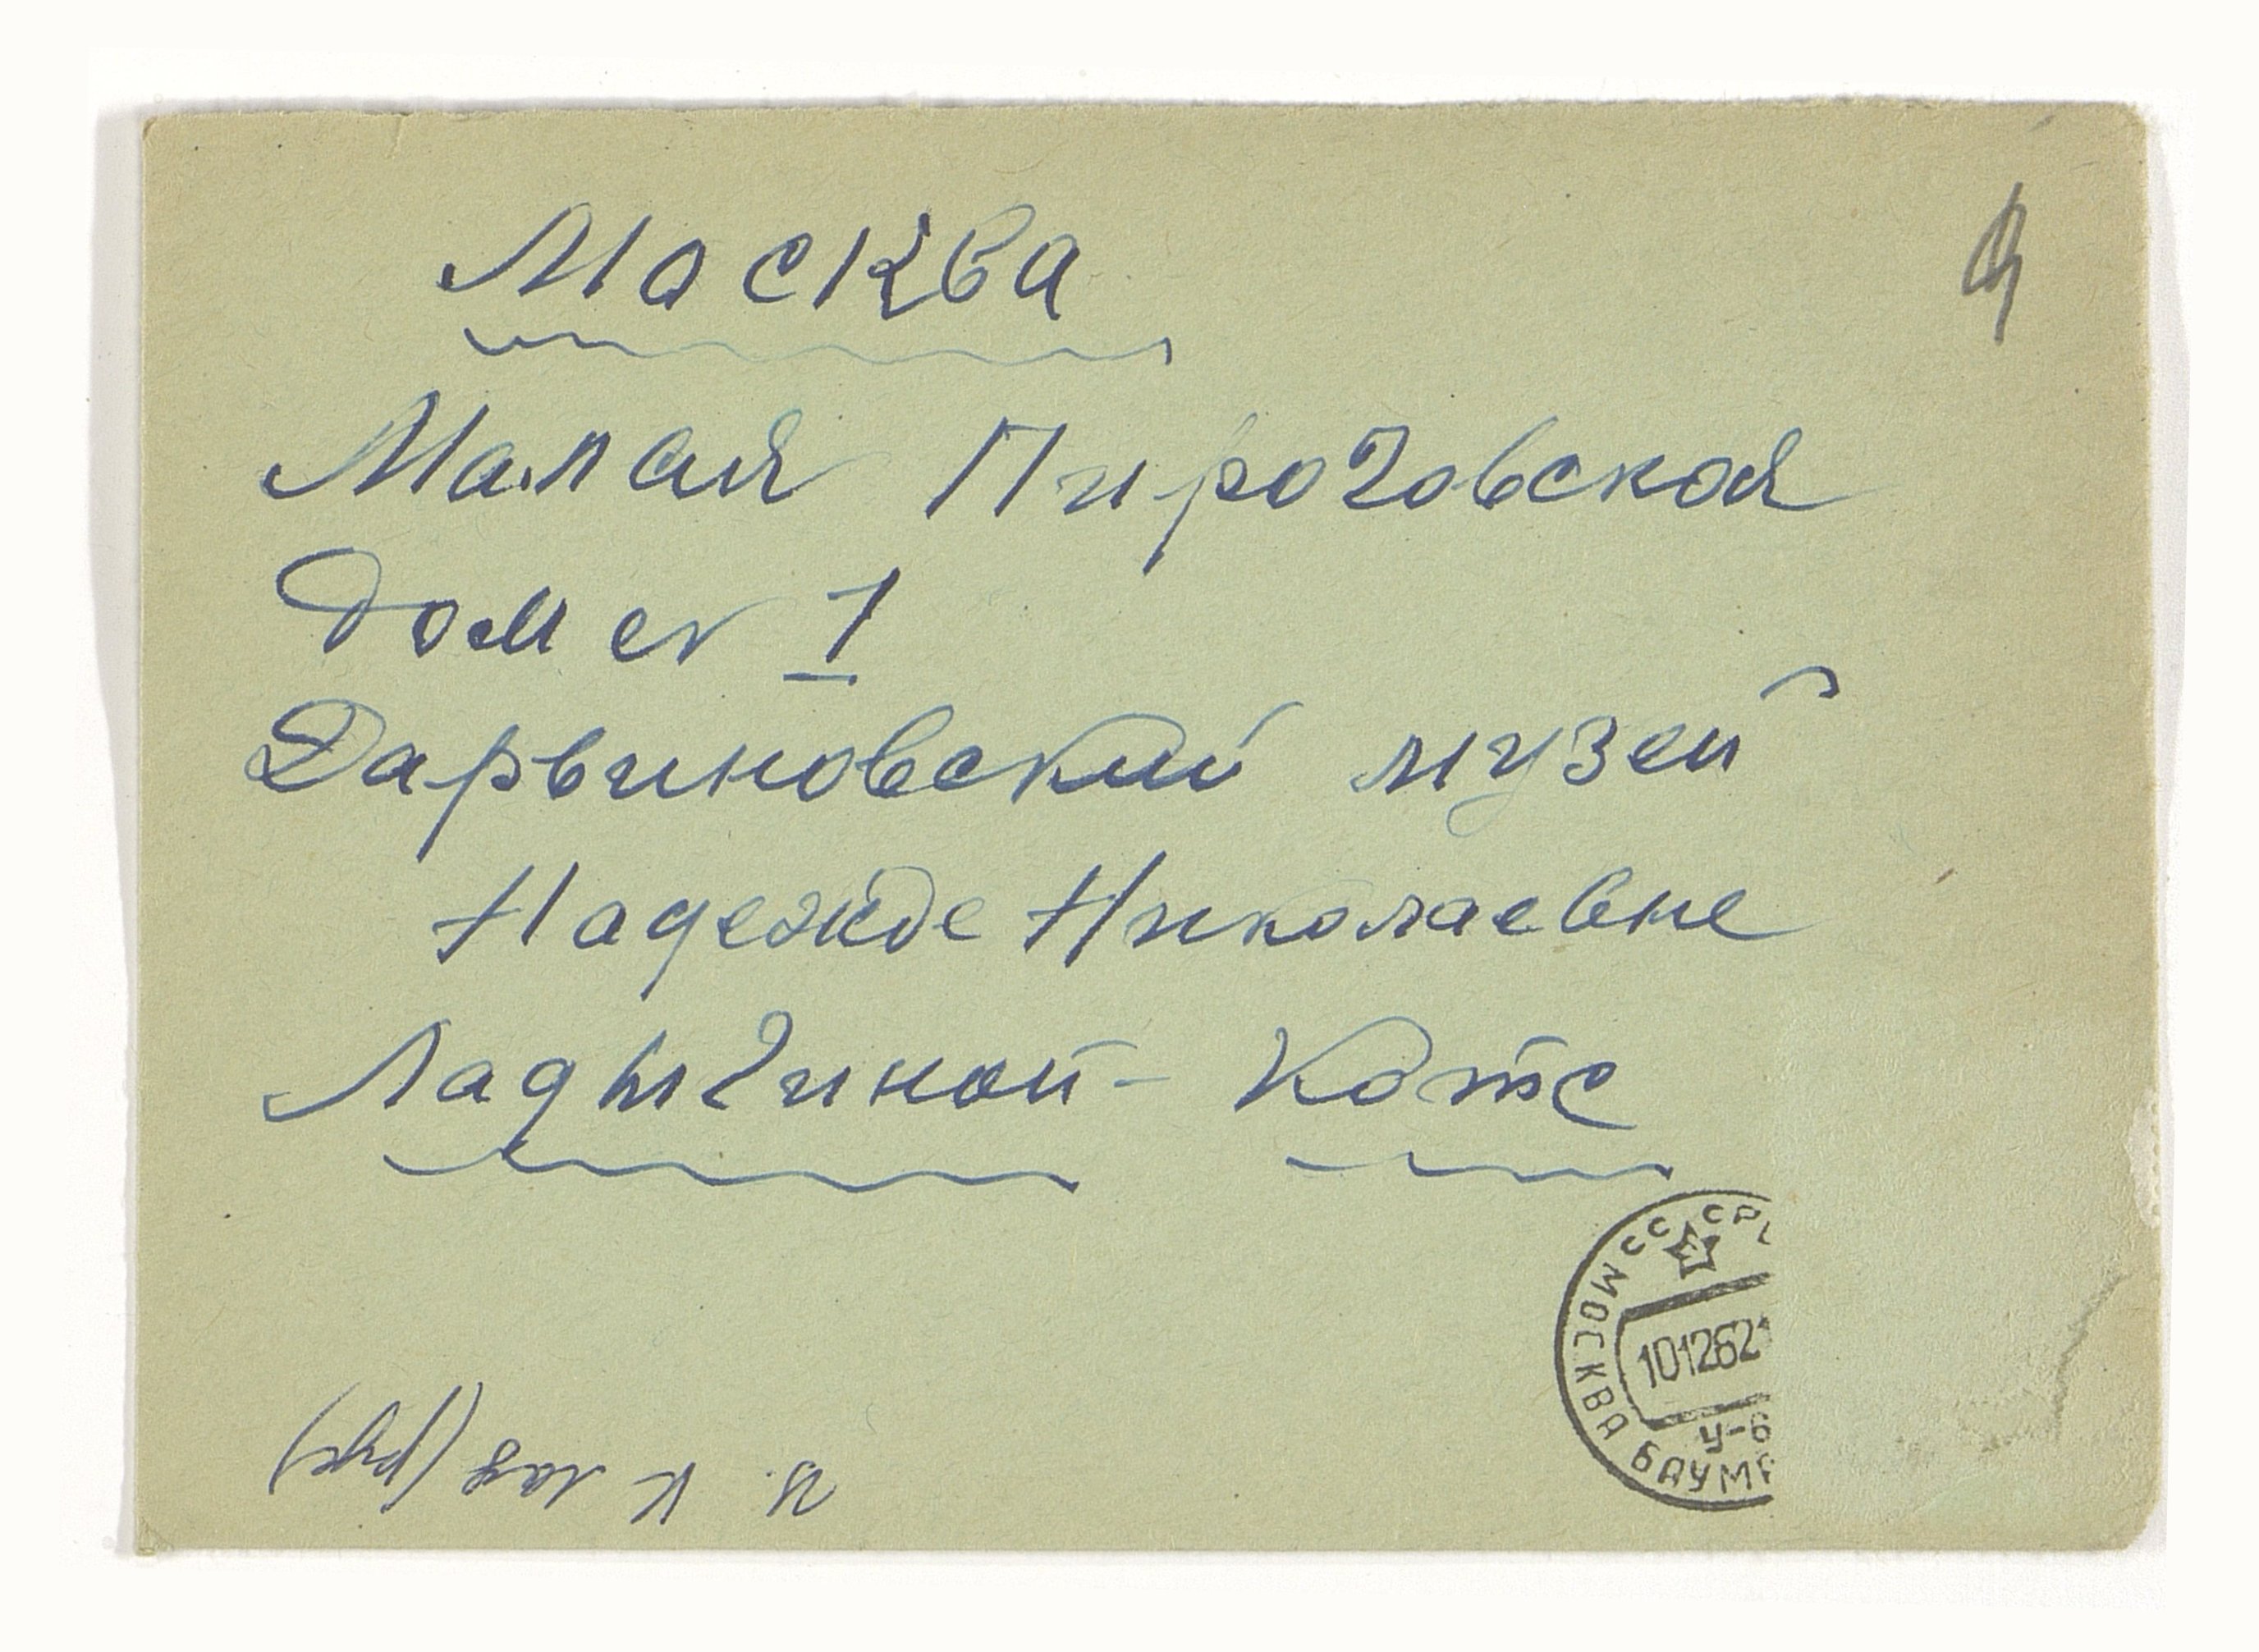 Москва
Малая Пироговская
дом № 1
Дарвиновский музей
Надежде Николаевне
Ладыгиной - Котс
МОСКВА БАУМ
СССР
10 12 62
У-6